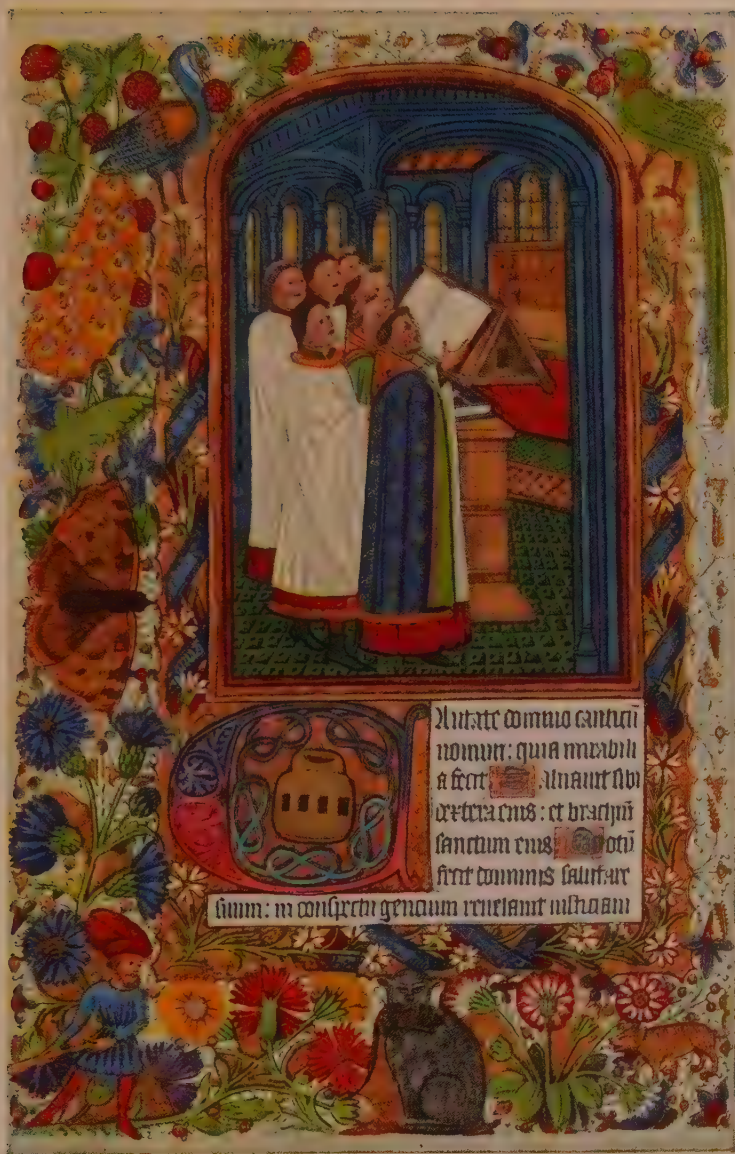 CAntate domino canticū
nouum: quia mirabili
a fecit Saluauit sibi
dextera eius: et brachiū
sanctum eius Notū
fecit dominus salutare
suum: in conspectu gencium reuelauit iusticiam